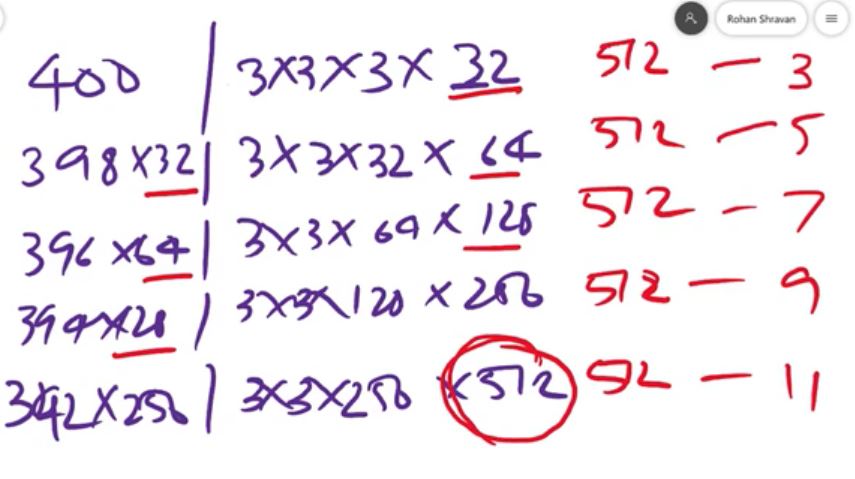 Rohan Shravan
400 | 3x3x3x 32 512 - 3
398 x32 | 3x3x32 x 64 512 - 5
396 x64 | 3x3x 64 x 128 512 - 7
394 x128 | 3x3x128 x 256 512 - 9
392x256 | 3x3x256 x512 512 - 11